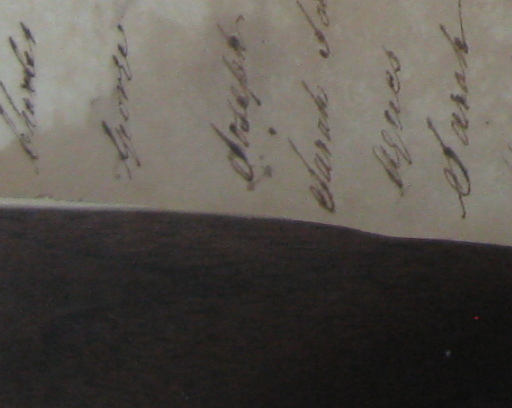 Charles
George
Joseph
Sarah
Agnes
Sarah